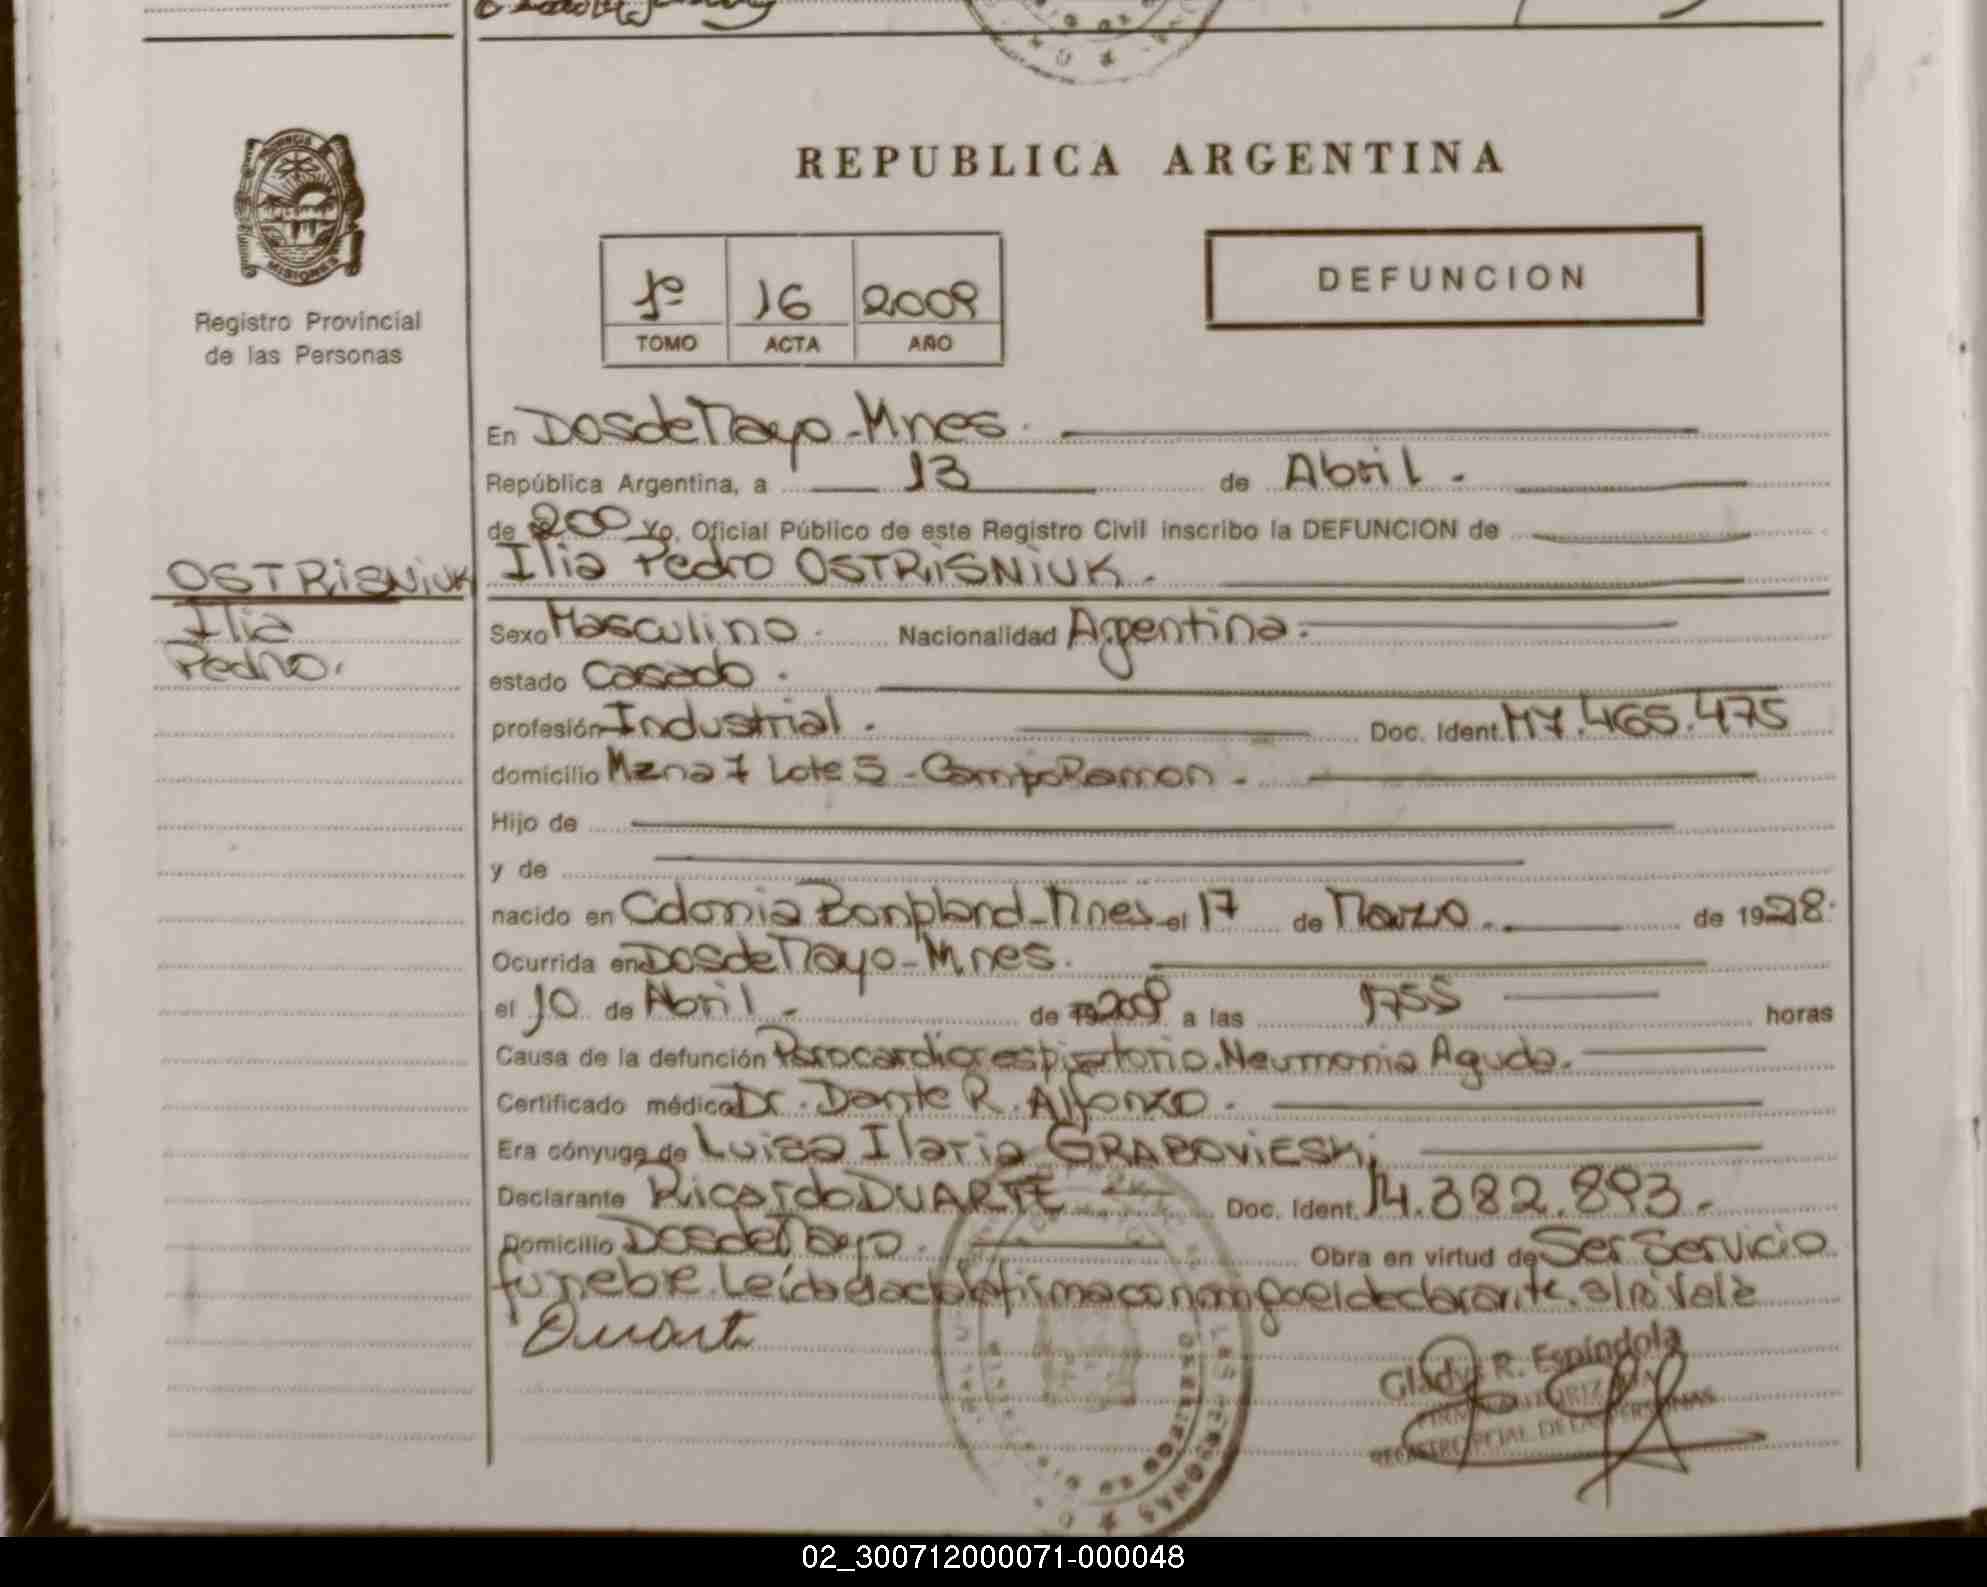 REPUBLICA ARGENTINA
PROVINCIA
MISIONES
Registro Provincial
de las Personas
1º 16 2009
TOMO ACTA AÑO
DEFUNCION
En Dos de Mayo - Mnes.
República Argentina, a 13 de Abril.
de 200 Yo, Oficial Público de este Registro Civil inscribo la DEFUNCION de
Ilia Pedro OSTRISNIUK.
OSTRISNIUK
Ilia
Pedro.
Sexo Masculino. Nacionalidad Argentina.
estado Casado.
profesión Industrial. Doc. Ident. M7.465.475
domicilio Mzna 7 Lote 5 - Campo Ramon.
Hijo de
y de
nacido en Colonia Bonpland - Mnes - el 17 de Marzo. de 1928.
Ocurrida en Dos de Mayo - Mnes.
el 10 de Abril. de 19 2009 a las 1755 horas
Causa de la defunción Parocardiorespiratorio. Neumonia Aguda.
Certificado médico Dr. Dante R. Alfonzo.
Era cónyuge de Luisa Ilaria GRABOVIESKI
Declarante Ricardo DUARTE Doc. Ident. 14.382.893.
Domicilio Dos de Mayo. Obra en virtud de Ser Servicio
funebre. Leída el acta la firma conmigo el declarante. Vale
Duarte
Gladys R. Espíndola
FIRMA AUTORIZADA
REGISTRO PCIAL. DE LAS PERSONAS
02_300712000071-000048